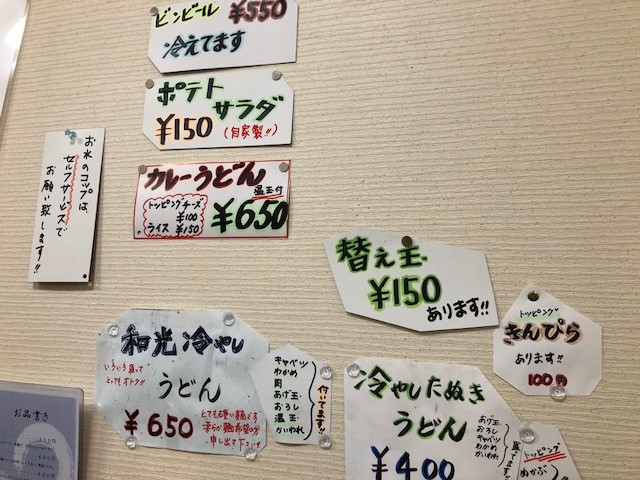 ビンビール ¥550
冷えてます
ポテト
サラダ
¥150 (自家製!!)
お水のコップは、
セルフサービスで
お願い致します!!
カレーうどん
温玉付
トッピングチーズ
¥100
ライス ¥150
¥650
替え玉
¥150
あります!!
トッピング
きんぴら
あります!!
100円
和光冷やし
いろいろ盛って
とってもオトク!!
うどん
¥650
とても硬い麺です
柔らか麺希望の方
申し出て下さい!!
キャベツ
わかめ
肉
あげ玉
おろし
温玉
かいわれ
付いてます!!
冷やしたぬき
うどん
¥400
あげ玉
おろし
キャベツ
わかめ
かいわれ
トッピング
めかぶ
お品書き